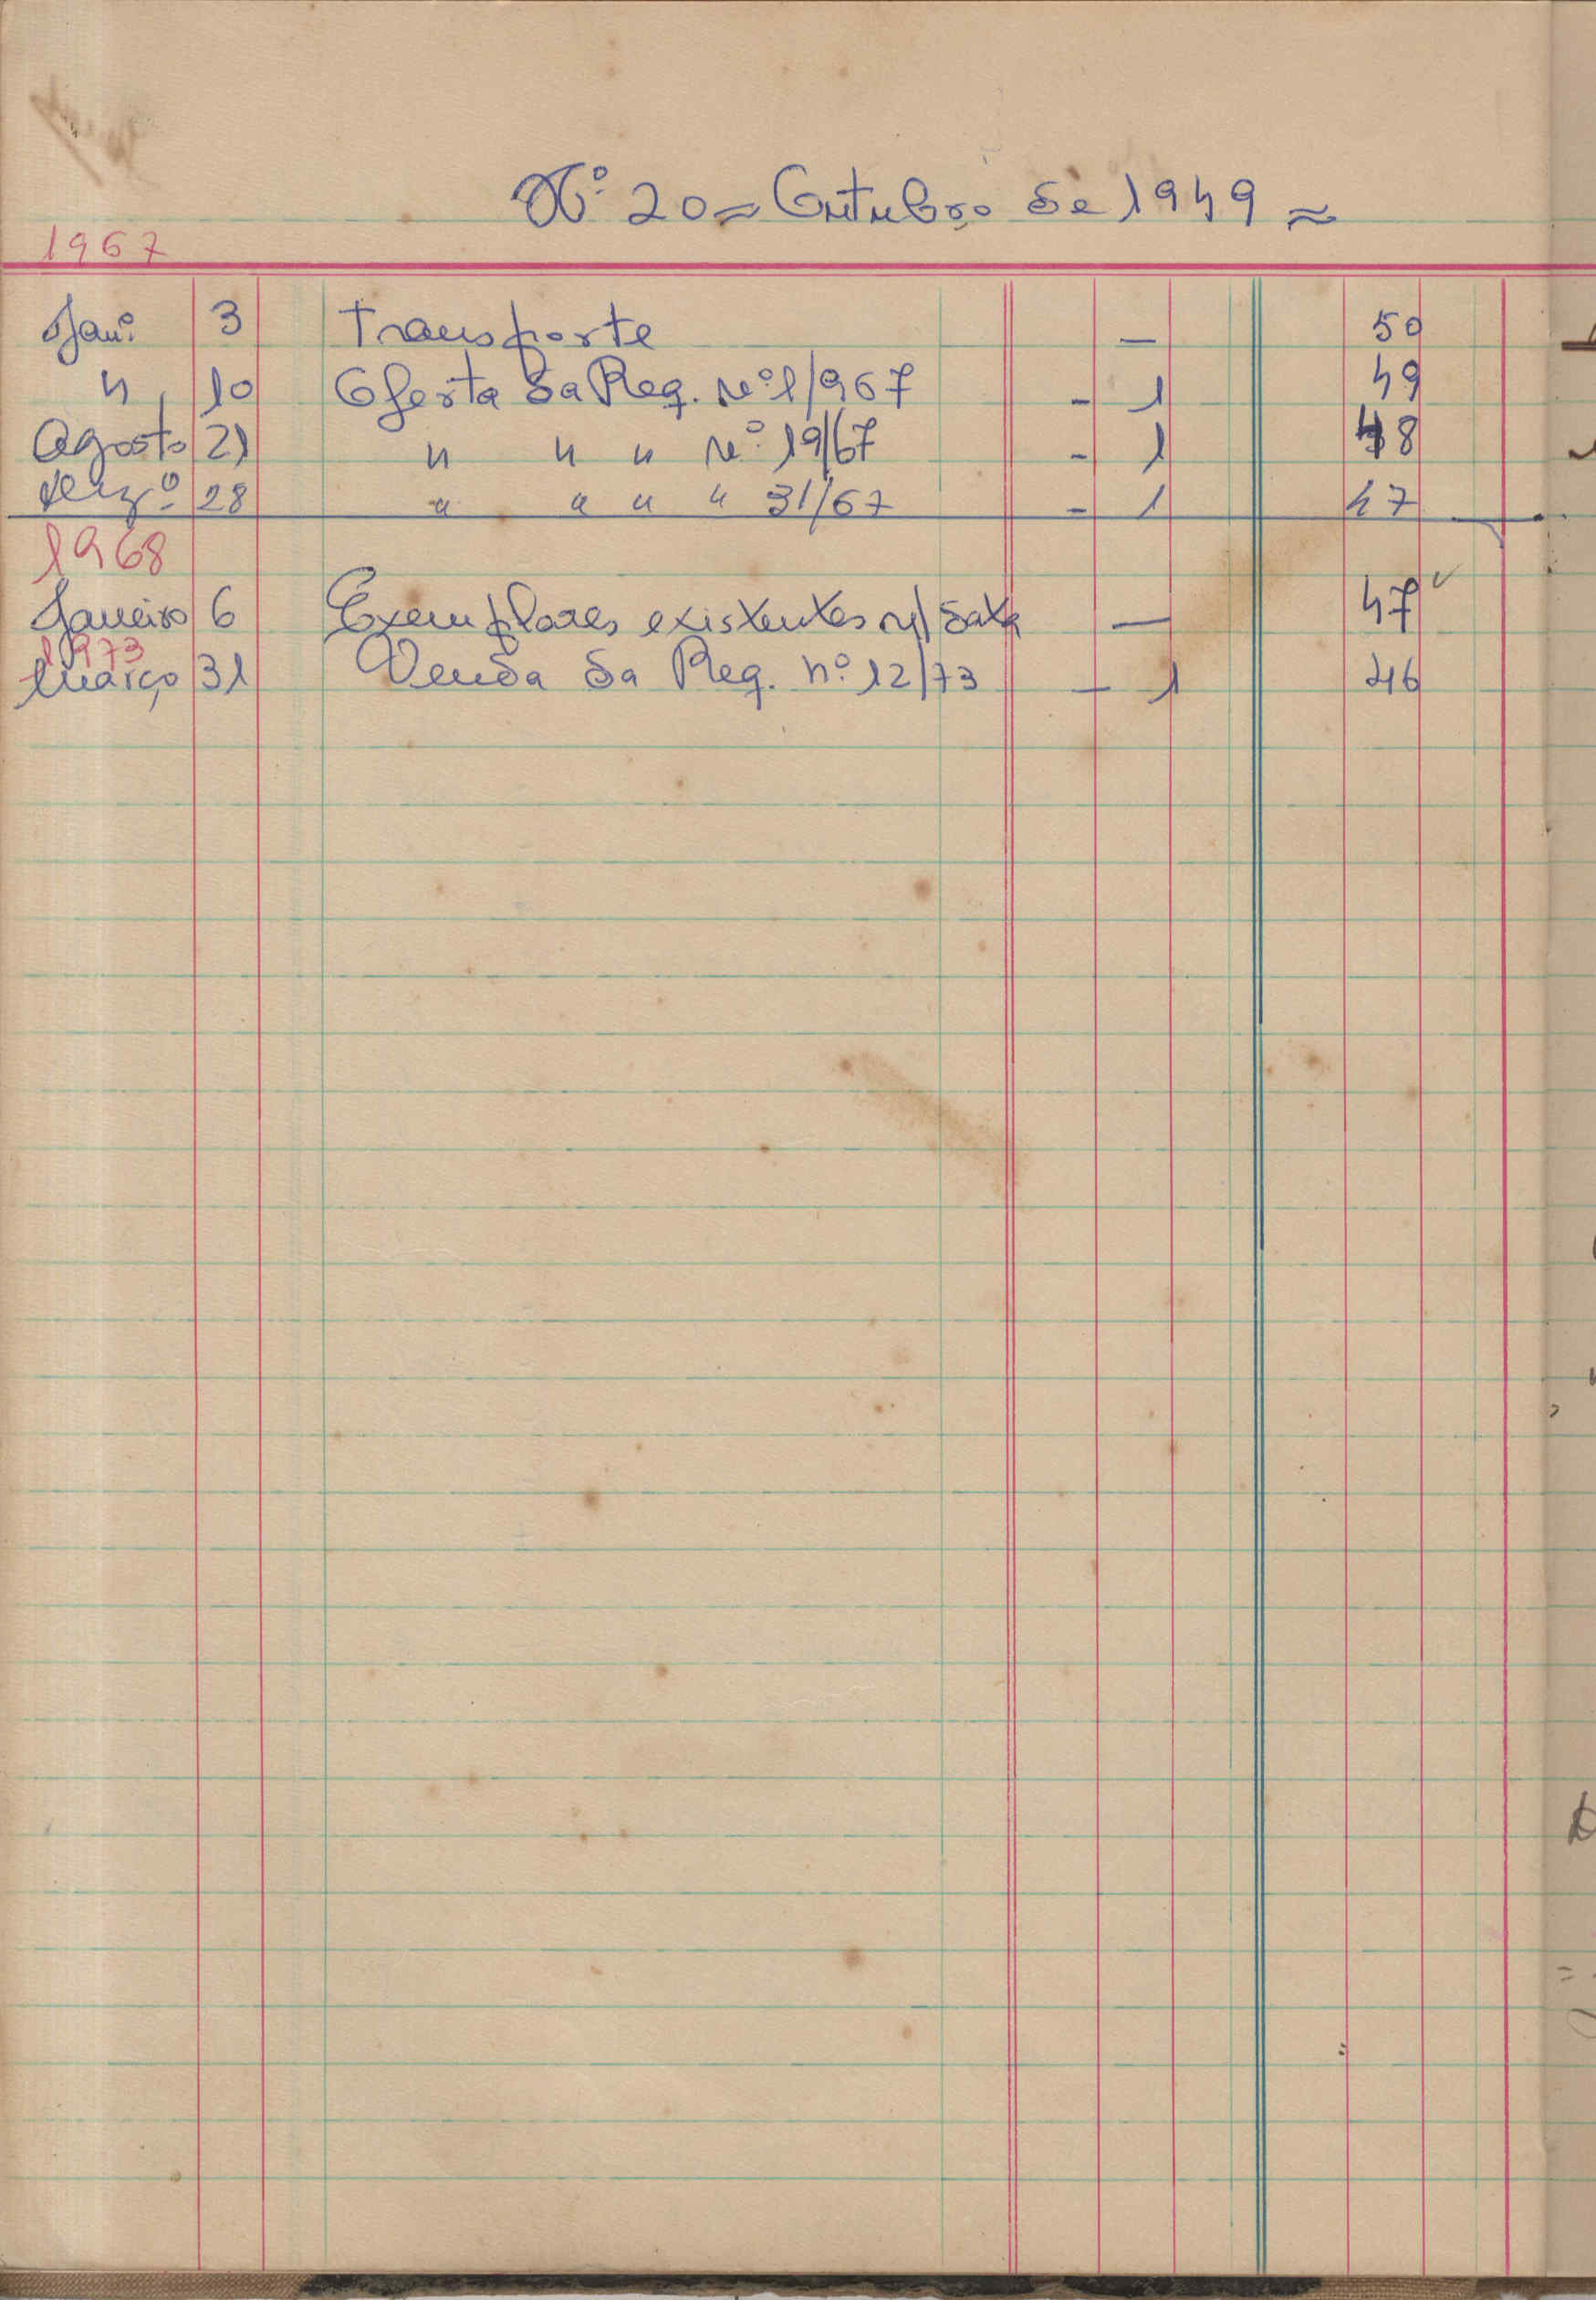 Nº 20 = Outubro de 1949 =
1967
Janº 3 Transporte — 50
" 10 Oferta da Req. Nº 1/967 - 1 49
Agosto 21 " " " Nº 19/67 - 1 48
Dezº 28 " " " " 31/67 - 1 47
1968
Janeiro 6 Exemplares existentes n/data — 47 ✓
1973
Março 31 Venda da Req. nº 12/73 - 1 46